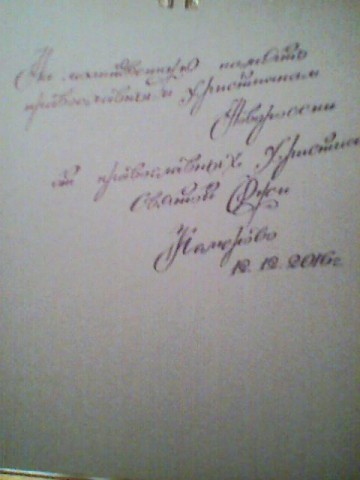 На молитвенную память
православным Христианам
Новороссии
от православных Христиан
Святой Руси
Кемерово
12.12.2016г